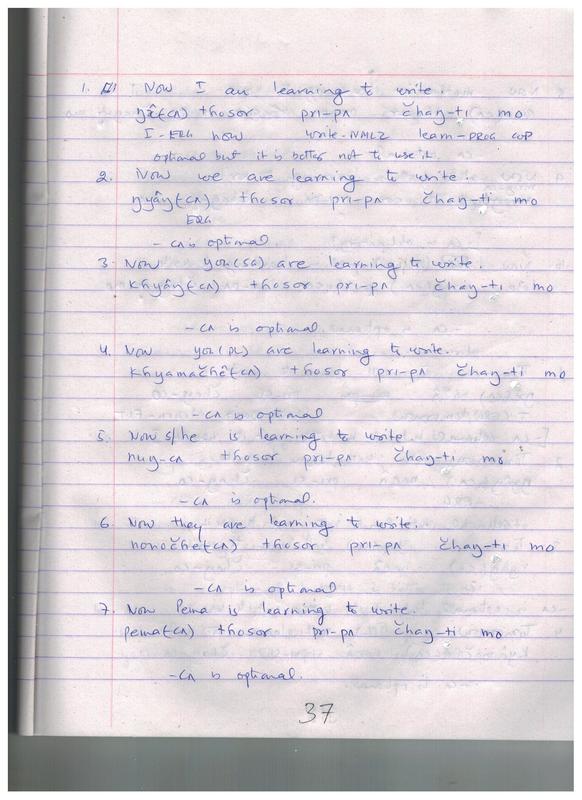 1. Now I am learning to write.
ŋê(cʌ) thosor pri-pʌ čhaŋ-ti mo
I-ERG now write-NMLZ learn-PROG COP
optional but it is better not to use it
2. Now we are learning to write.
ŋyâŋ(cʌ) thosor pri-pʌ čhaŋ-ti mo
ERG
- cʌ is optional.
3. Now you(SG) are learning to write.
khyâŋ(cʌ) thosor pri-pʌ čhaŋ-ti mo
-cʌ is optional.
4. Now you(PL) are learning to write.
khyamačhê(cʌ) thosor pri-pʌ čhaŋ-ti mo
-cʌ is optional
5. Now s/he is learning to write
huŋ-cʌ thosor pri-pʌ čhaŋ-ti mo
-cʌ is optional.
6. Now they are learning to write.
nonočhe(cʌ) thosor pri-pʌ čhaŋ-ti mo
-cʌ is optional
7. Now Pema is learning to write.
pema(cʌ) thosor pri-pʌ čhaŋ-ti mo
-cʌ is optional.
37